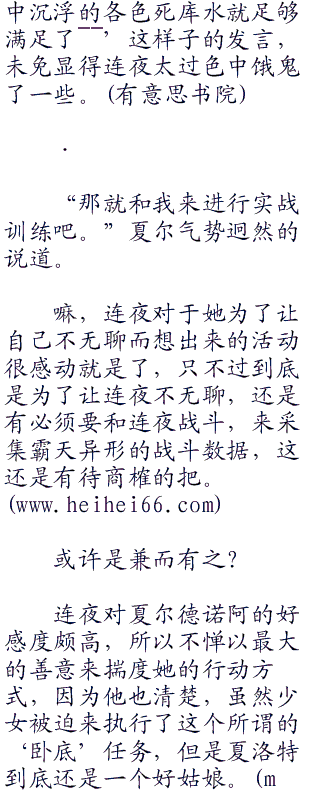 中沉浮的各色死库水就足够
满足了——’这样子的发言，
未免显得连夜太过色中饿鬼
了一些。(有意思书院)
.
“那就和我来进行实战
训练吧。”夏尔气势迥然的
说道。
嘛，连夜对于她为了让
自己不无聊而想出来的活动
很感动就是了，只不过到底
是为了让连夜不无聊，还是
有必须要和连夜战斗，来采
集霸天异形的战斗数据，这
还是有待商榷的把。
(www.heihei66.com)
或许是兼而有之？
连夜对夏尔德诺阿的好
感度颇高，所以不惮以最大
的善意来揣度她的行动方
式，因为他也清楚，虽然少
女被迫来执行了这个所谓的
‘卧底’任务，但是夏洛特
到底还是一个好姑娘。(m